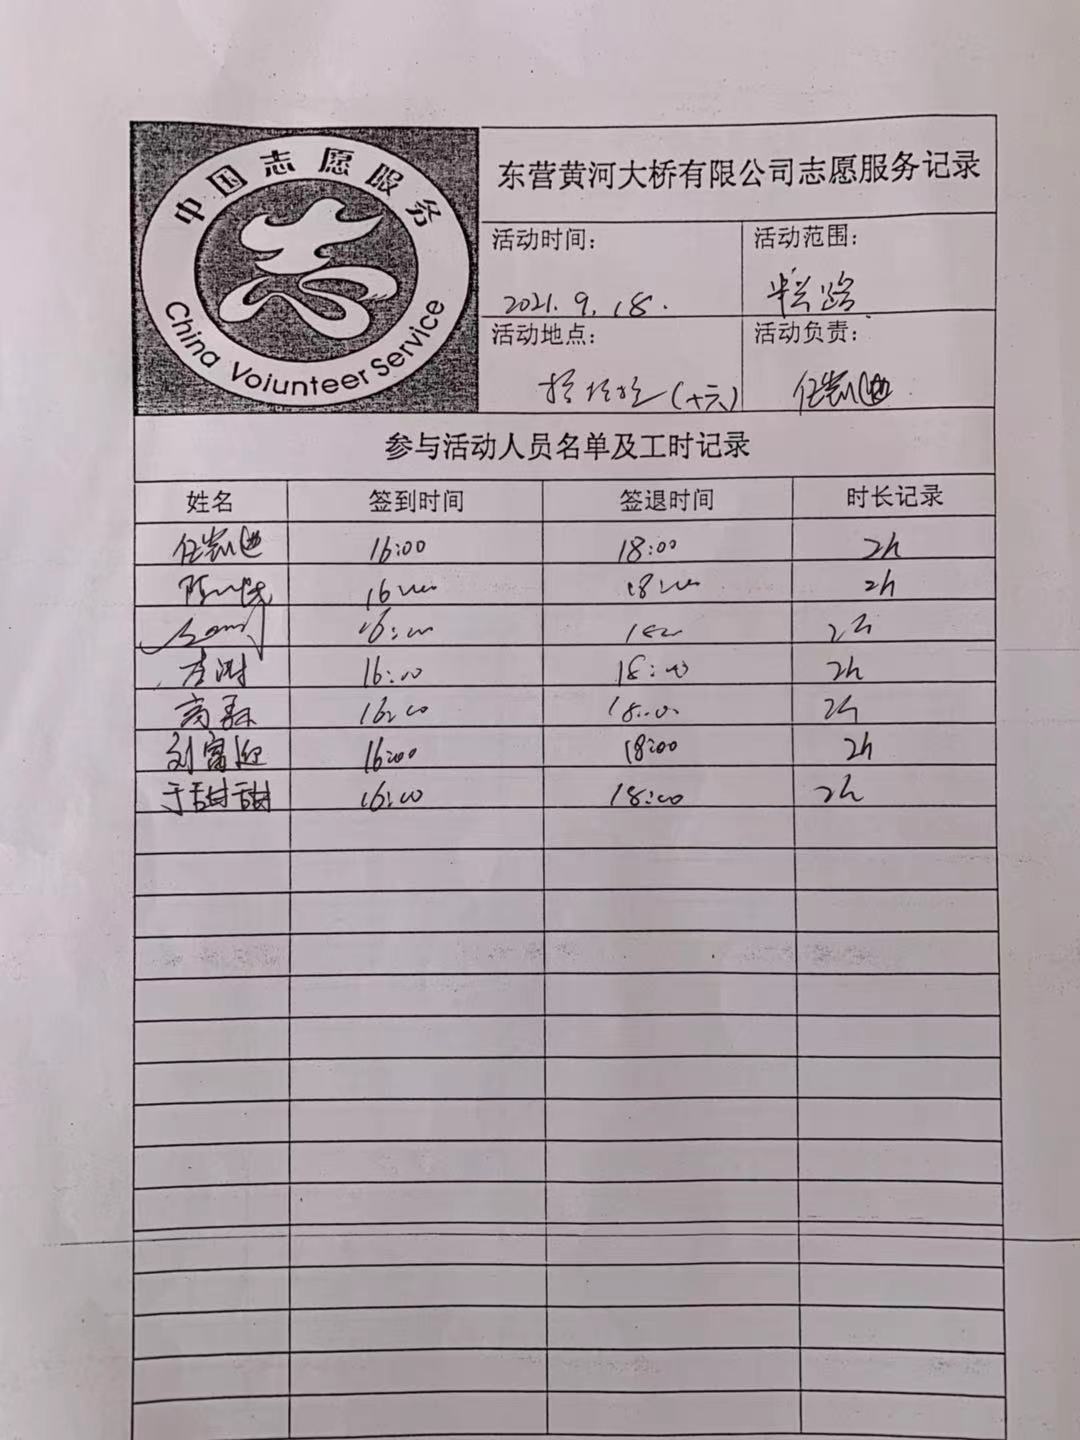 中国志愿服务
China Voiunteer Service
东营黄河大桥有限公司志愿服务记录
活动时间：
2021.9.18.
活动范围：
活动地点：
(十六)
活动负责：
任凯迪
参与活动人员名单及工时记录
姓名 签到时间 签退时间 时长记录
任凯迪 16:00 18:00 2h
16:00 18:00 2h
16:00 2h
16:00 18:00 2h
高 16:00 18:00 2h
刘富迎 16:00 18:00 2h
于甜甜 16:00 18:00 2h